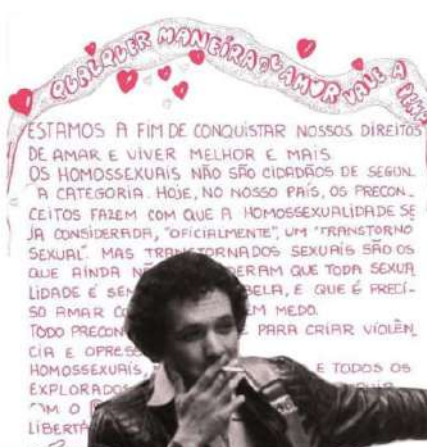 QUALQUER MANEIRA D'AMOR VALE A PENA
ESTAMOS A FIM DE CONQUISTAR NOSSOS DIREITOS
DE AMAR E VIVER MELHOR E MAIS
OS HOMOSSEXUAIS NÃO SÃO CIDADÃOS DE SEGUN_
A CATEGORIA. HOJE, NO NOSSO PAÍS, OS PRECON_
CEITOS FAZEM COM QUE A HOMOSSEXUALIDADE SE
JA CONSIDERADA, "OFICIALMENTE", UM "TRANSTORNO
SEXUAL". MAS TRANSTORNADOS SEXUAIS SÃO OS
QUE AINDA NÃ DERAM QUE TODA SEXUA
LIDADE É SEM BELA, E QUE É PRECI-
SO AMAR CO EM MEDO.
TODO PRECON PARA CRIAR VIOLÊN_
CIA E OPRESS
HOMOSSEXUAIS, E TODOS OS
EXPLORADOS
OM O
LIBERTA